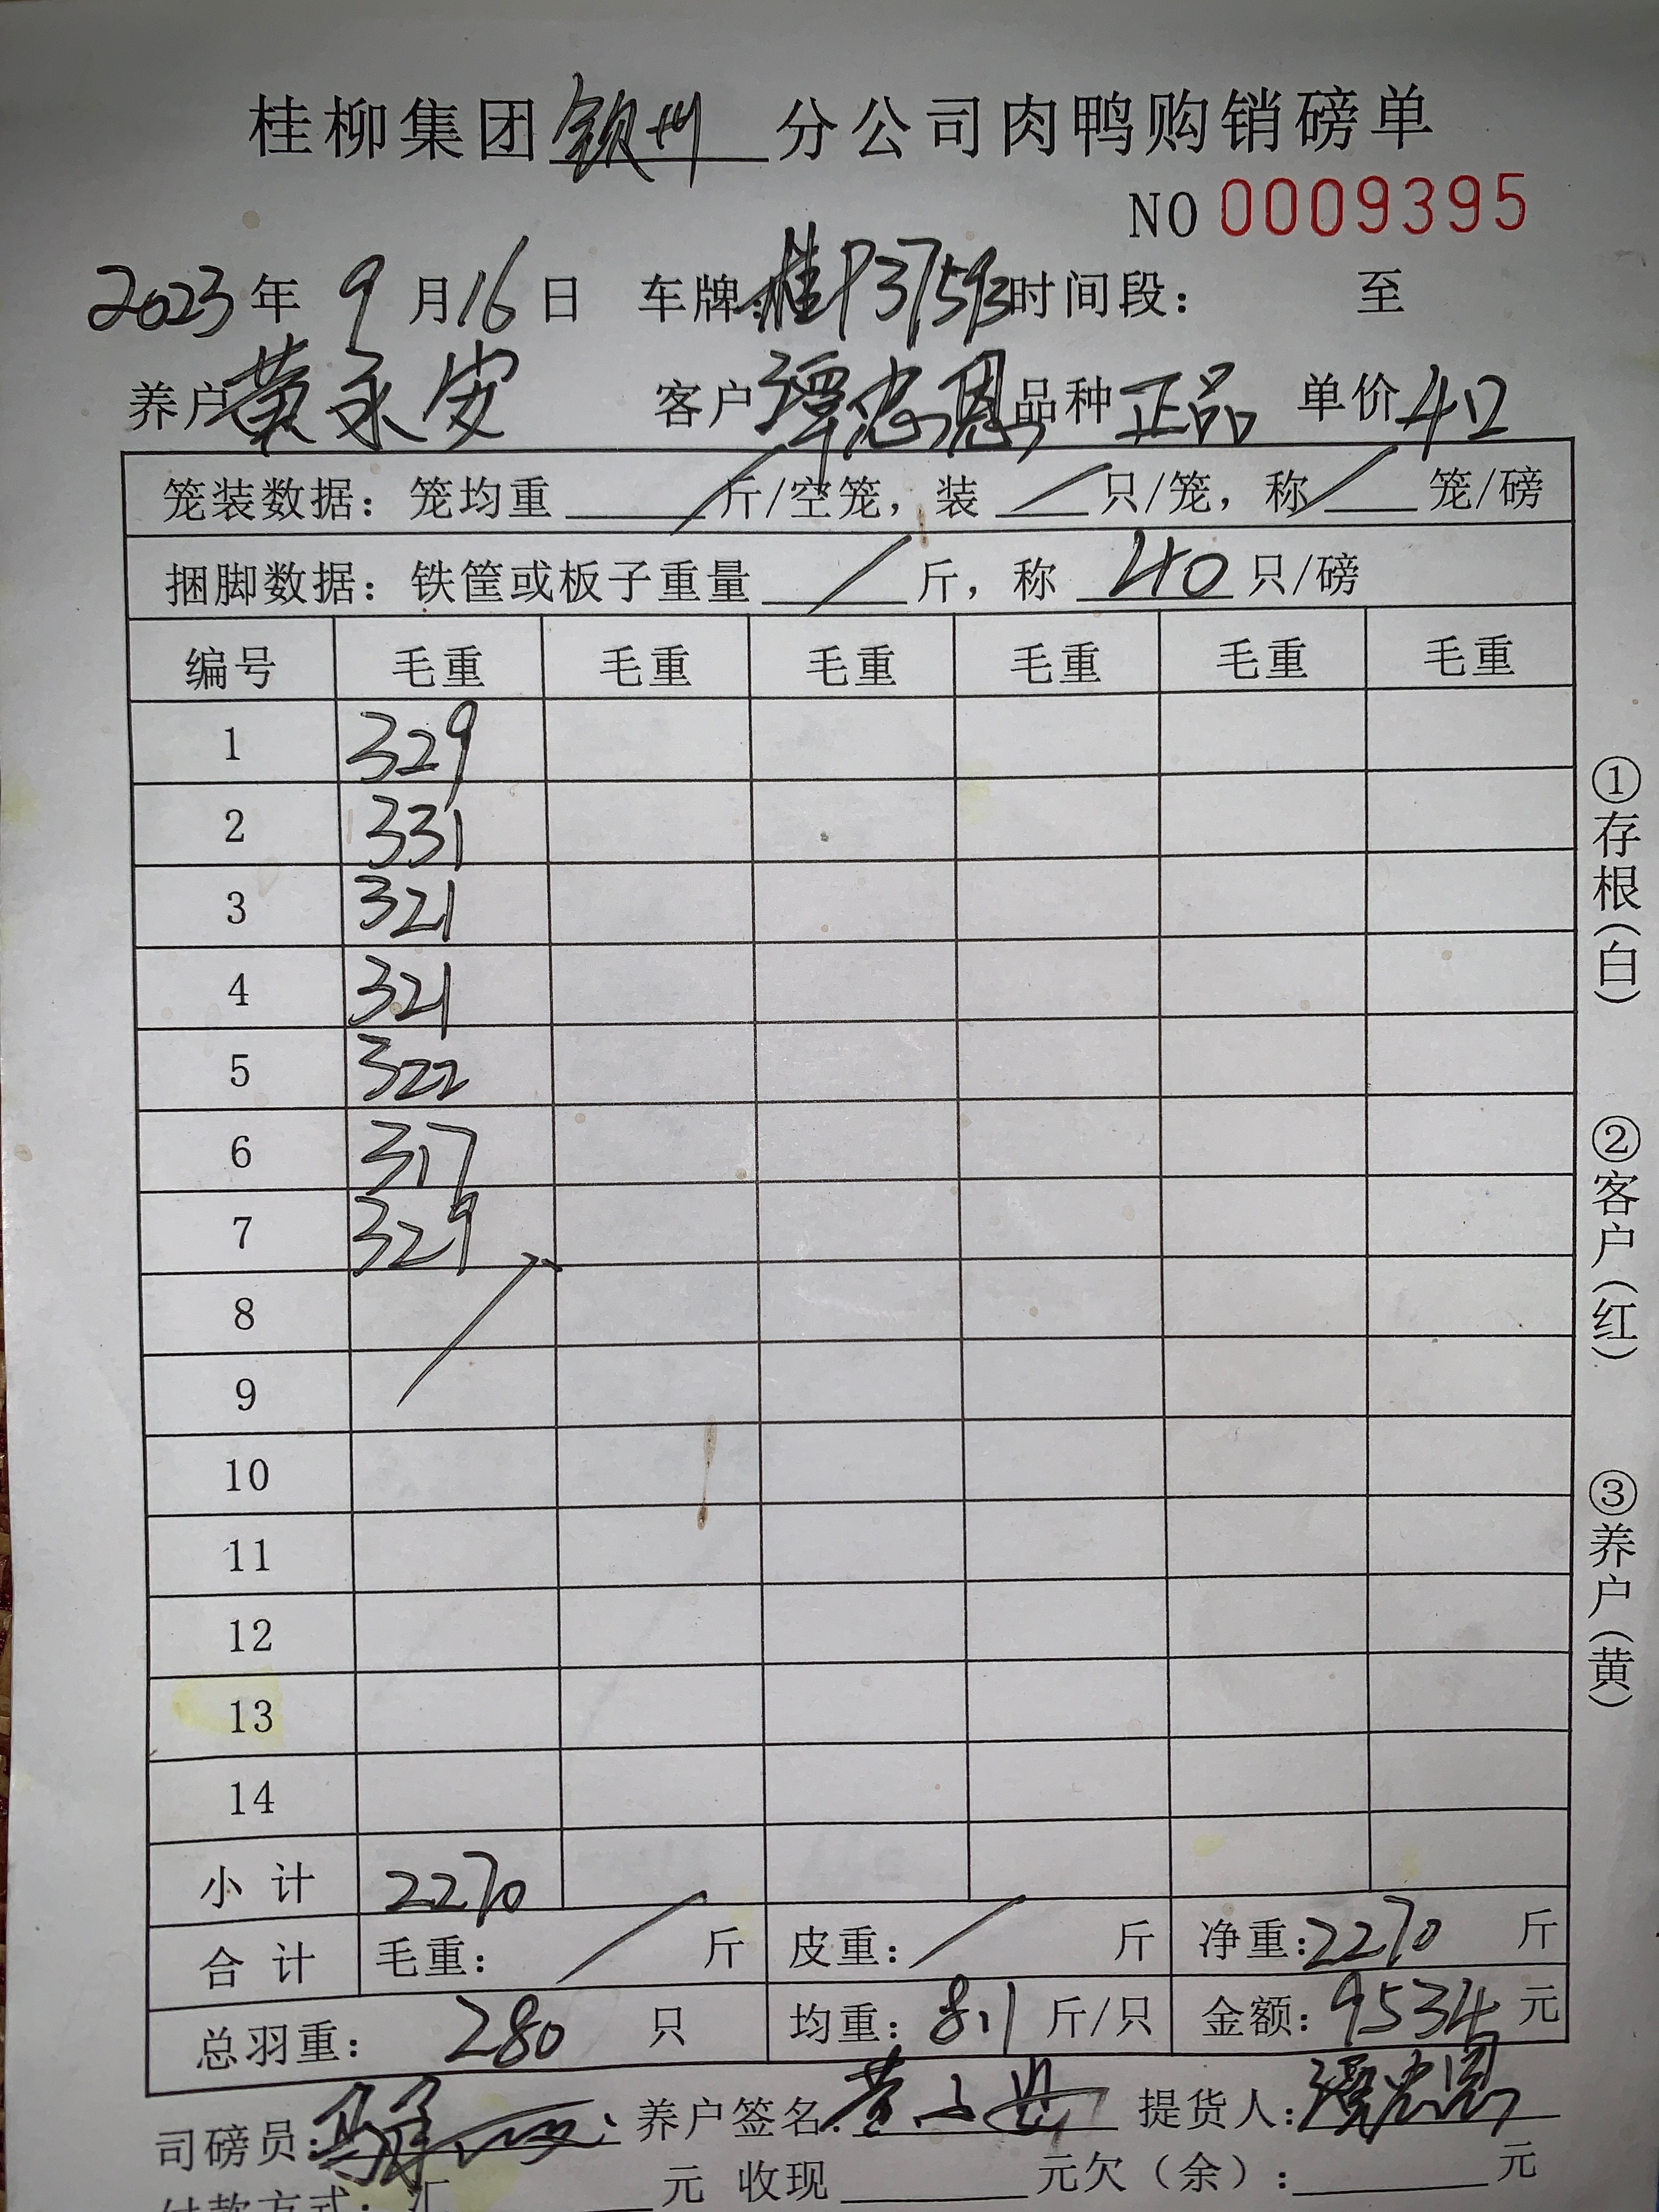 桂柳集团钦州分公司肉鸭购销磅单
NO 0009395
2023年 9月16日 车牌:桂P37593时间段: 至
养户黄永安 客户谭忠恩品种正品 单价42
笼装数据: 笼均重/斤/空笼, 装/只/笼, 称/笼/磅
捆脚数据: 铁筐或板子重量/斤, 称40只/磅
编号 毛重 毛重 毛重 毛重 毛重 毛重
1 329
2 331
3 321
4 321
5 322
6 317
7 329
8
9
10
11
12
13
14
小计 2270
合计 毛重: / 斤 皮重: / 斤 净重:2270 斤
总羽重: 280 只 均重: 8.1 斤/只 金额: 9534 元
司磅员: 养户签名: 提货人:谭忠恩
付款方式: 汇 元 收现 元欠(余): 元
①存根(白)
②客户(红)
③养户(黄)